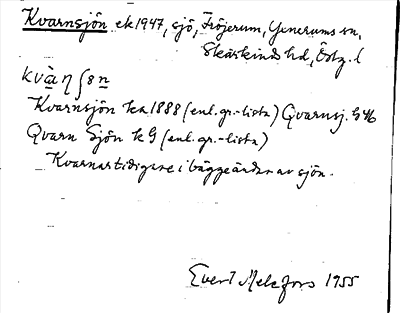 Kvarnsjön ek 1947, sjö, Fröjerum, Yxnerums sn,
Skärkinds hd, Östg. l
Kvarnsjön ka 1888 (enl. gr.-lista) Qvarnsj. G 46
Qvarn Sjön k G (enl. gr.-lista)
Kvarnar tidigare i bägge ändar av sjön.
Evert Melefors 1955